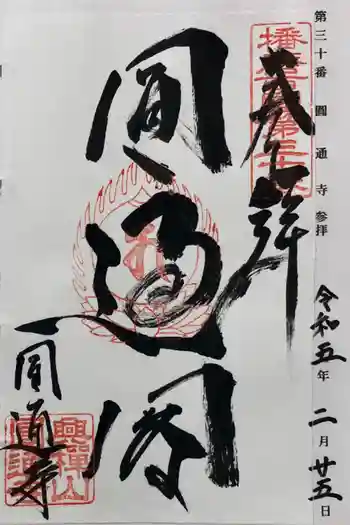 第三十番 圓通寺参拝
令和五年二月廿五日
奉拝
圓通閣
圓通寺
興禅山